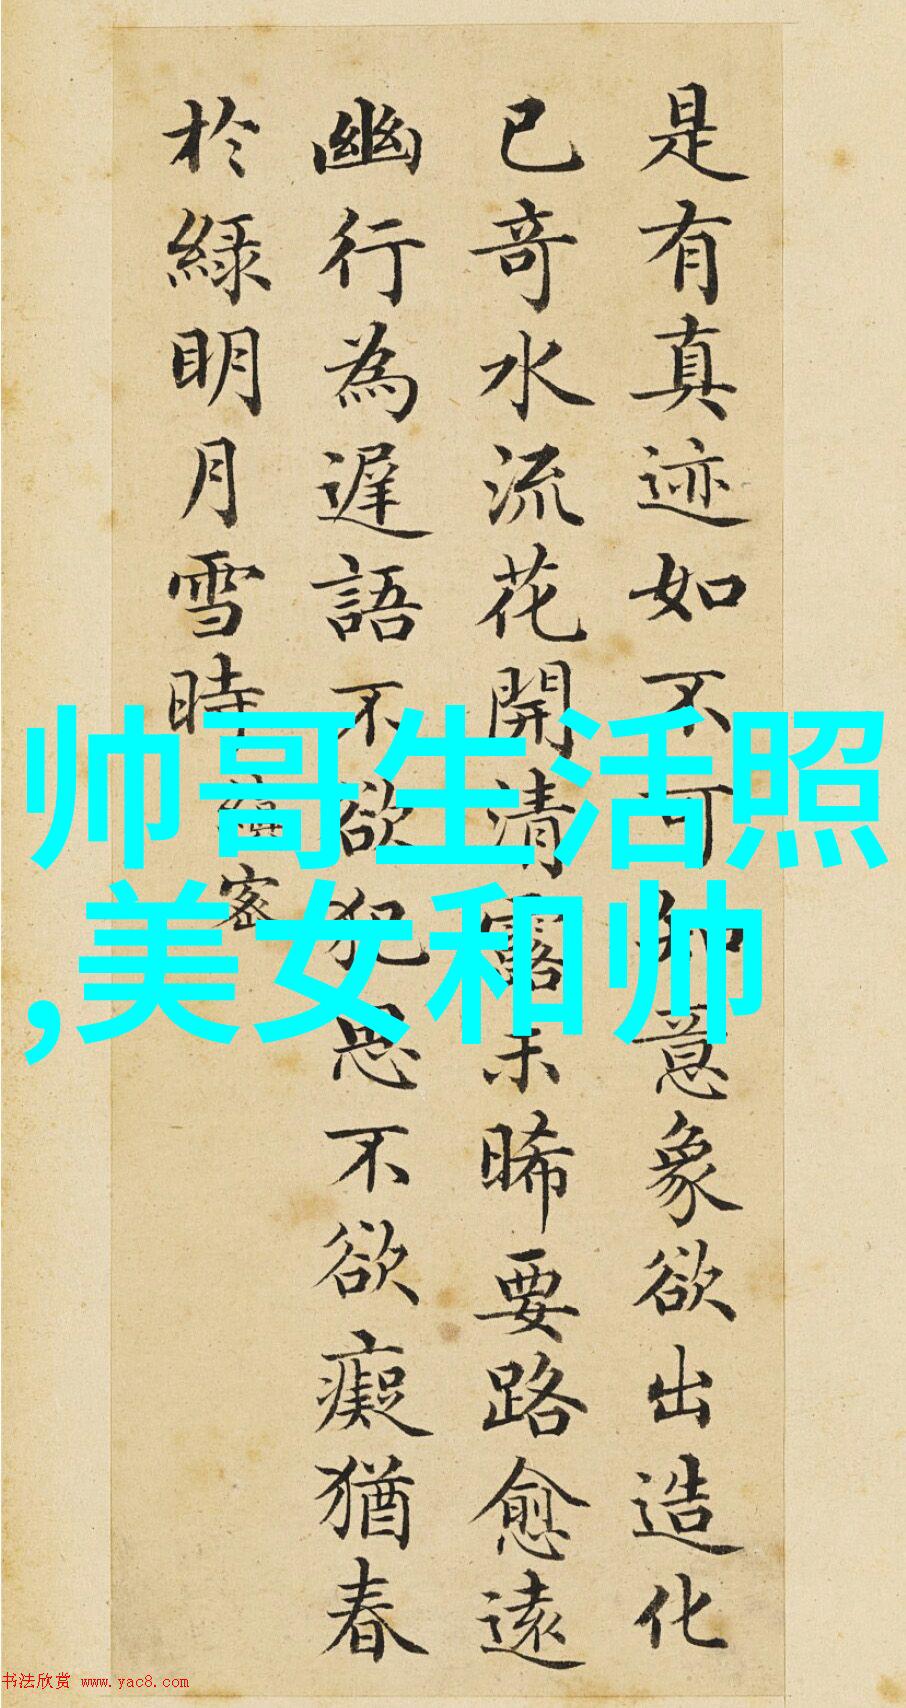 是有真迹如不可知意象欲出造化
已奇水流花開清露未晞要路愈遠
幽行為遲語不欲犯思不欲癡猶春
於綠明月雪時
縝密
帅哥生活照
,美女和帅
书法欣赏 www.yac8.com